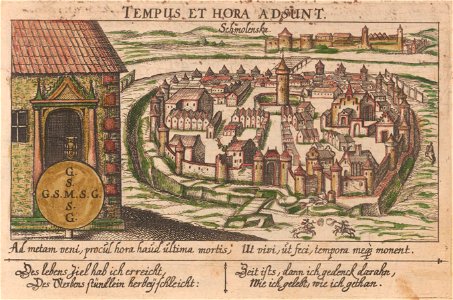 TEMPUS ET HORA ADSUNT.
Schmolenska
G
S
G.S.M.S.G
S
G
Ad metam veni, procul hora haud ultima mortis, Ut vivi, ut feci, tempora meq; monent.
Des lebens Ziel hab ich erreicht, Zeit ists, dann ich gedenck darahn,
Des sterbens stündlein herbey schleicht: Wie ich gelebt, wie ich gethan.